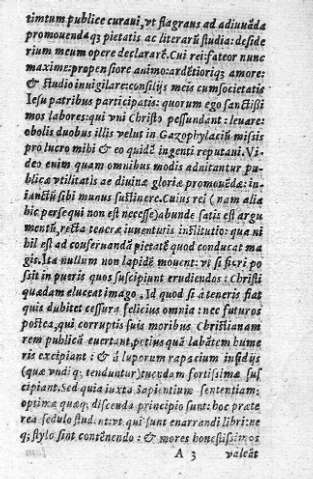 timtum publice curaui, vt flagrans ad adiuuãda
promouendaqʒ pietatis ac literarũ studia: deside
rium meum declararẽ. Cui rei: fateor nunc
maxime: propensiore animo: ardẽtioriqʒ amore:
& studio inuigilare: consilijs meis cum societatis
Iesu patribus participatis: quorum ego sanctissi
mos labores: qui vni Christo pessundant: leuare:
obolis duobus illis velut in Gazophylaciũ missis
pro lucro mihi & eo quidẽ ingenti reputaui. Vi-
deo enim quam omnibus modis adnitantur pu-
blicæ vtilitatis ac diuinæ gloriæ promouẽdæ: in-
iunctũ sibi munus sustinere. Cuius rei (nam alia
hic persequi non est necesse) abunde satis est argu
mentũ, recta teneræ iuuentutis institutio: qua ni
hil est ad conseruandã pietatẽ quod conducat ma
gis. Ita nullum non lapidẽ mouent: vt si fieri po
ssit in pueris quos suscipiunt erudiendos: Christi
quædam eluceat imago. Id quod si à teneris fiat
quis dubitet cessura felicius omnia: nec futuros
postea, qui corruptis suis moribus Christianam
rem publicã euertant, potius quã labãtem hume
ris excipiant: & à luporum rapacium insidijs
(quæ vndiqʒ tenduntur) tuendam fortissimæ sus
cipiant. Sed quia iuxta Sapientium sententiam:
optimæ quæqʒ discenda principio sunt: hoc præte
rea sedulo student: vt qui sunt enarrandi libri: ne
qʒ stylo sint contẽnendo: & mores honestissimos
A 3 valeãt